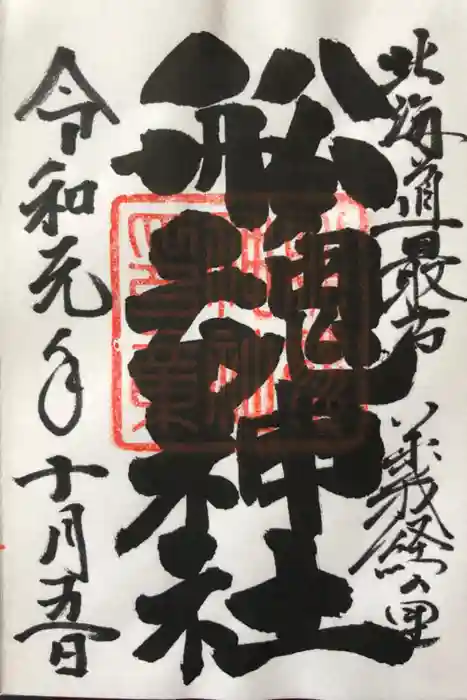 北海道最古 義経の里
船魂神社
令和元年十月五日